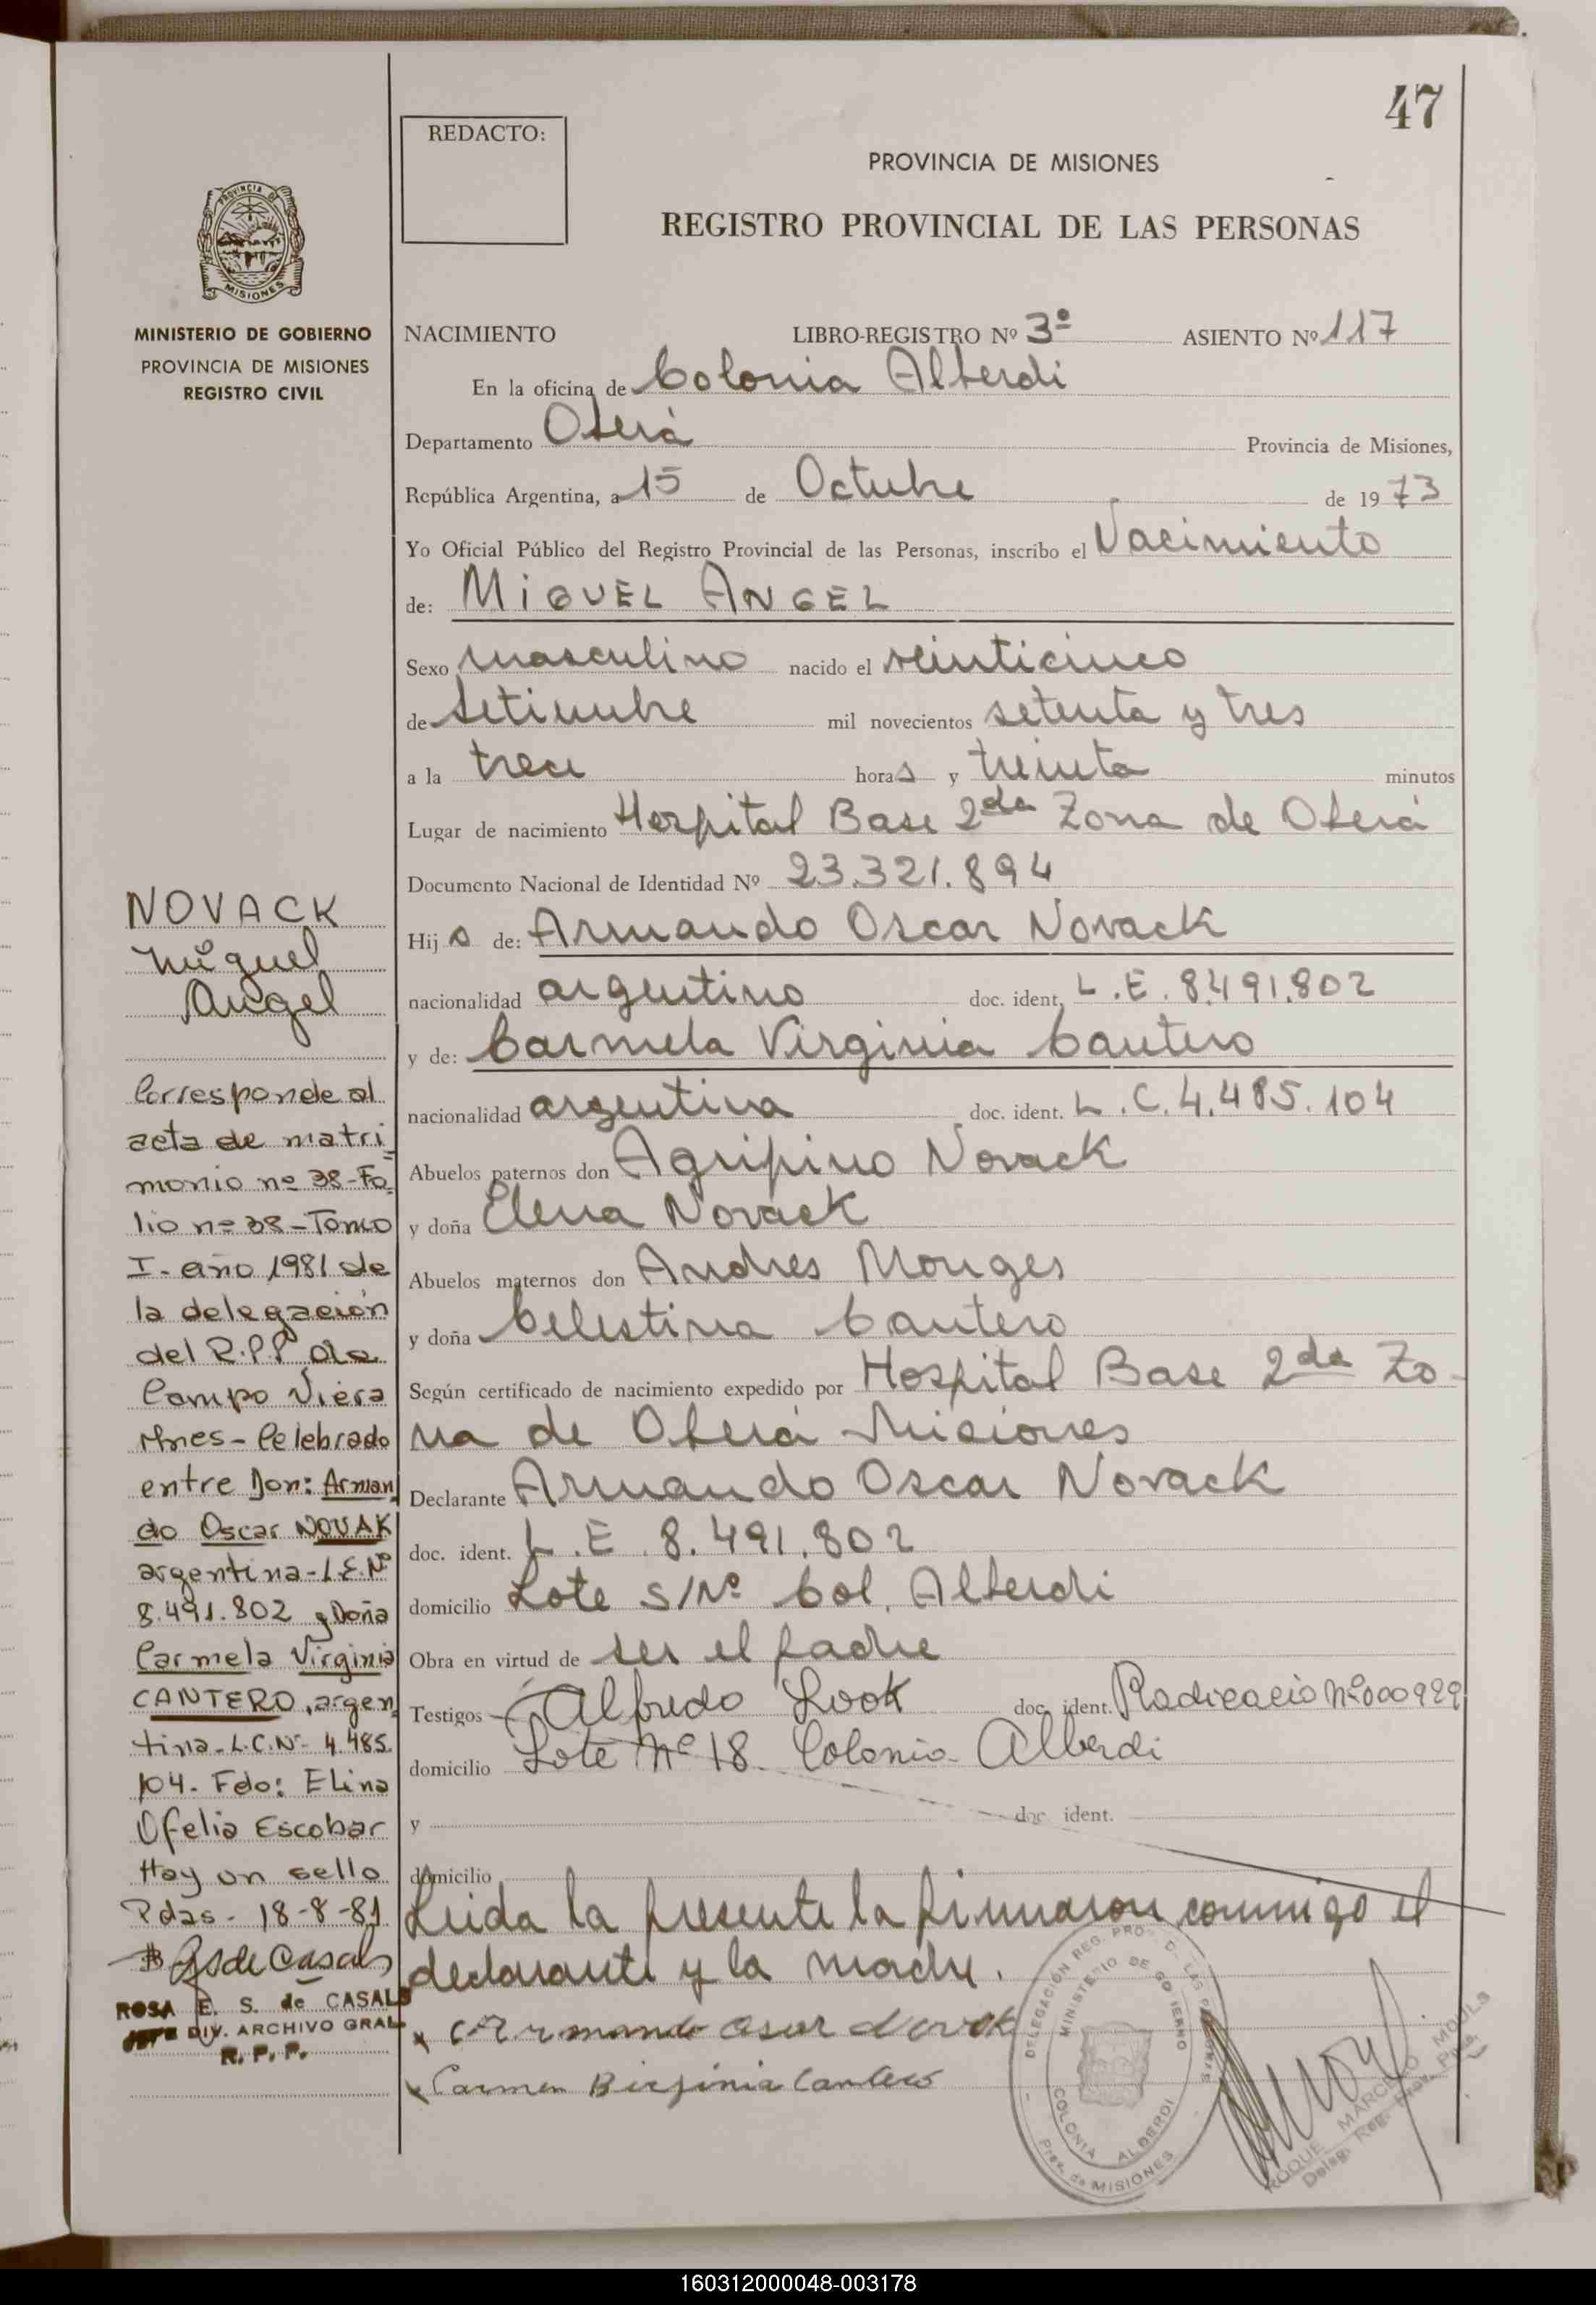 47
REDACTO:
PROVINCIA DE MISIONES
REGISTRO PROVINCIAL DE LAS PERSONAS
PROVINCIA DE
MISIONES
MINISTERIO DE GOBIERNO
PROVINCIA DE MISIONES
REGISTRO CIVIL
NACIMIENTO LIBRO-REGISTRO Nº 3º ASIENTO Nº 117
En la oficina de Colonia Alberdi
Departamento Oberá Provincia de Misiones,
República Argentina, a 15 de Octubre de 1973
Yo Oficial Público del Registro Provincial de las Personas, inscribo el Nacimiento
de: MIGUEL ANGEL
Sexo masculino nacido el veinticinco
de Setiembre mil novecientos setenta y tres
a la trece horas y treinta minutos
Lugar de nacimiento Hospital Base 2da Zona de Oberá
Documento Nacional de Identidad Nº 23.321.894
Hijo de: Armando Oscar Novack
nacionalidad argentino doc. ident. L.E. 8.491.802
y de: Carmela Virginia Cantero
nacionalidad argentina doc. ident. L.C. 4.485.104
Abuelos paternos don Agripino Novack
y doña Elena Novack
Abuelos maternos don Andres Monges
y doña Celestina Cantero
Según certificado de nacimiento expedido por Hospital Base 2da Zo-
na de Oberá Misiones
Declarante Armando Oscar Novack
doc. ident. L.E. 8.491.802
domicilio Lote S/Nº Col. Alberdi
Obra en virtud de ser el padre
Testigos Alfredo Look doc. ident. Radicacio Nº000929
domicilio Lote Nº 18 Colonia Alberdi
y doc. ident.
domicilio
Leida la presente la firmaron conmigo el
declarante y la madre.
Armando Oscar Novak
Carmen Birjinia Cantero
NOVACK
Miguel
Angel
Corresponde al
acta de matri
monio nº 38-Fo
lio nº 38-Tomo
I-año 1981 de
la delegación
del R.P.P de
Campo Viera
Mnes-Celebrado
entre Don: Arman
do Oscar NOVAK
argentina-L.E.Nº
8.491.802 y Doña
Carmela Virginia
CANTERO, argen
tina-L.C.Nº 4.485.
104. Fdo: Elina
Ofelia Escobar
Hay un sello
Pdas- 18-8-81
ROSA E. S. de CASALS
JEFE DIV. ARCHIVO GRAL.
R. P. P.
MINISTERIO DE GOBIERNO
COLONIA ALBERDI
Prov. de MISIONES
ROQUE MARCELO MOULS
160312000048-003178